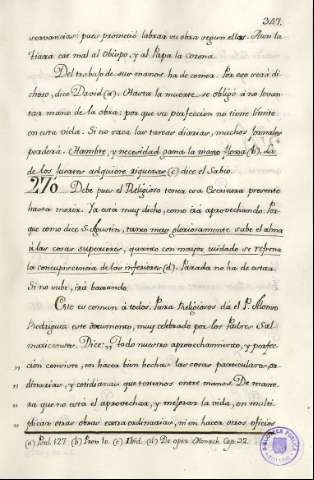 347.
servancias: pues prometió labrar su obra segun ellas. Aun la
Tiara cae mal al Obispo, y al Papa la corona.
Del trabajo de sus manos ha de comer. Por eso será di-
choso, dice David (a). Hasta la muerte se obligó á no levan-
tar mano de la obra: por que su perfeccion no tiene limite
en esta vida. Si no saca las tareas diarias, muchos jornales
perderá. Hambre, y necesidad gana la mano floxa (b). La
de los fuertes adquiere riquezas (c) dice el Sabio.
276 Debe pues el Religioso tener esa Escritura presente
hasta morir. Ya está muy dicho, como irá aprovechando. Por-
que como dice S. Agustin, tanto mas gloriosamente sube el alma
á las cosas superiores, quanto con mayor cuidado se refrena
la concupiscencia de las inferiores (d). Parada no ha de estar.
Si no sube, irá baxando.
Esto es comun á todos. Para Religiosos dá el P. Alonso
Rodriguez este documento, muy celebrado por los Padres Sal-
maticenses. Dice: „ Todo nuestro aprovechamiento, y perfec-
„ cion consiste, en hacer bien hechas las cosas particulares, or-
„ dinarias, y cotidianas que tenemos entre manos. De mane-
„ ra que no está el aprovechar, y mejorar la vida, en multi-
„ plicar otras obras extraordinarias, ni en hacer otros oficios
(a) Psal. 127. (b) Prov. 10. (c) Ibid. (d) De oper. Monach. Cap. 22.